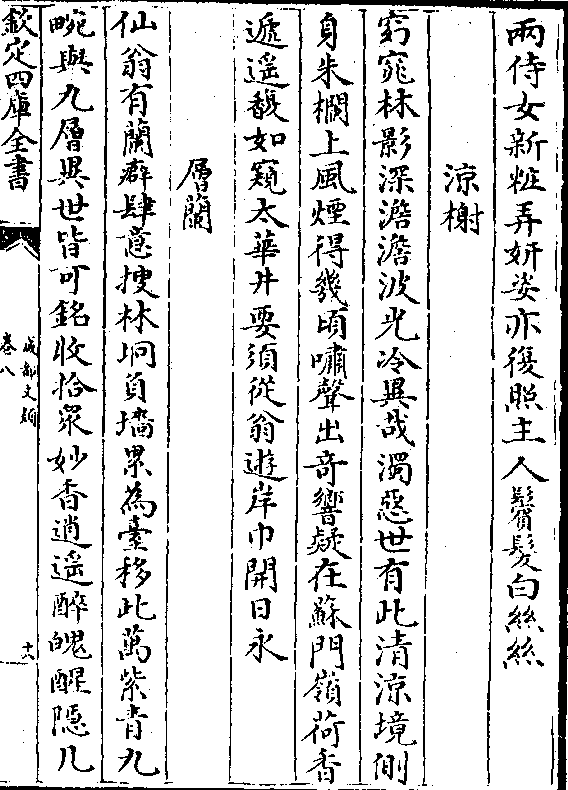 兩侍女新粧弄妍姿亦復照主人鬢髮白絲絲
涼榭
窈窕林影深澹澹波光冷異哉濁惡世有此清涼境側
身朱欄上風煙得幾頃嘯聲出奇響疑在蘇門嶺荷香
遞遥馥如窺太華井要須從翁遊岸巾開日永
層蘭
仙翁有蘭癖肆意搜林坰負墻累為臺移此萬紫青九
畹與九層異世皆可銘收拾衆妙香逍遥醉魄醒隠几
欽定四庫全書
成都文類
卷八
十六